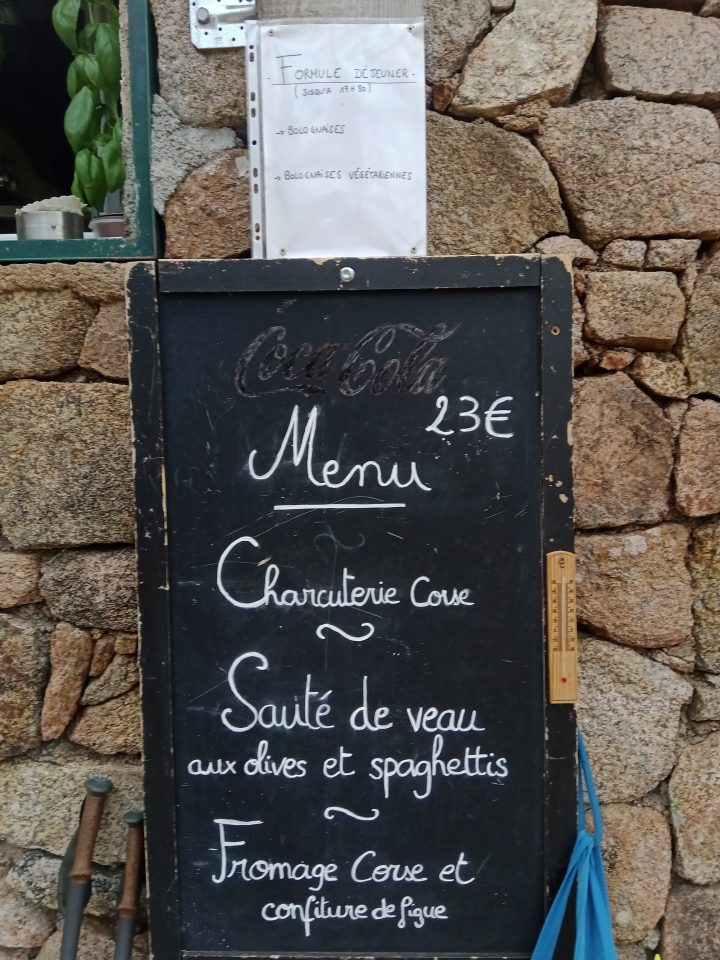 - FORMULE DÉJEUNER -
(JUSQU'A 17H30)
→ BOLOGNAISES
→ BOLOGNAISES VÉGÉTARIENNES
Coca-Cola
23€
Menu
Charcuterie Corse
Sauté de veau
aux olives et spaghettis
Fromage Corse et
confiture de figue